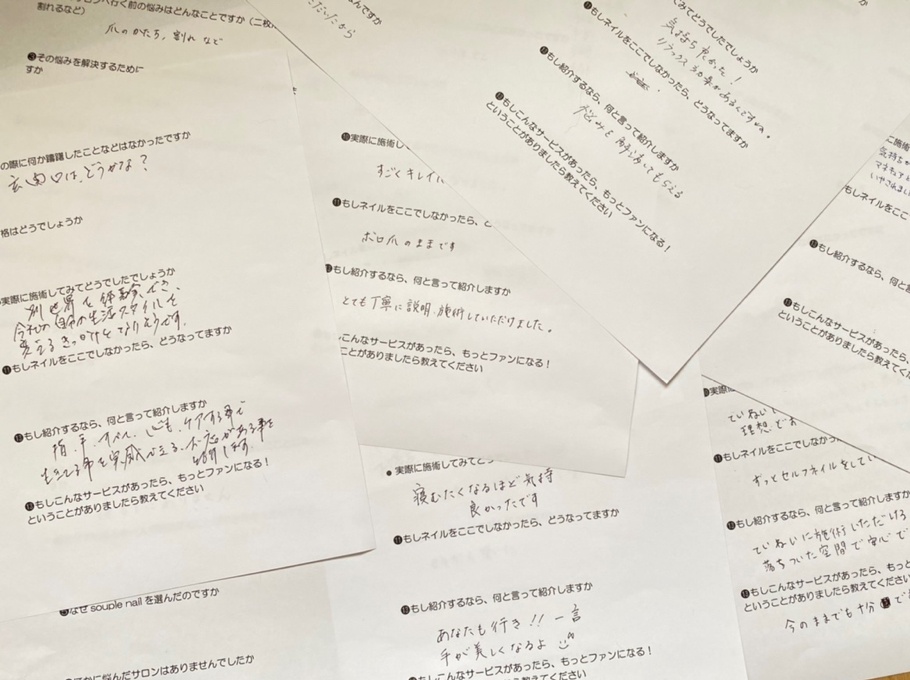 行く前の悩みはどんなことですか（二枚
割れるなど）
爪のかたち、割れ など
その悩みを解決するために
すか
の際に何か躊躇したことなどはなかったですか
玄関口は、どうかな？
格はどうでしょうか
実際に施術してみてどうでしたでしょうか
別世界を体験でき、
今の自分の生活スタイルを
変えるきっかけとなりそうです。
⓫もしネイルをここでしなかったら、どうなってますか
⓬もし紹介するなら、何と言って紹介しますか
指、手、すべて、心も、ケアする事で
⓭もしこんなサービスがあったら、もっとファンになる！
ということがありましたら教えてください
なぜ souple nail を選んだのですか
かに悩んだサロンはありませんでしたか
んですか
だから
❿実際に施術し
すごくキレイに
⓫もしネイルをここでしなかったら、
ボロ爪のままです
もし紹介するなら、何と言って紹介しますか
とても丁寧に説明、施術していただけました。
こんなサービスがあったら、もっとファンになる！
ことがありましたら教えてください
● 実際に施術してみて
寝むたくなるほど気持
良かったです
⓫もしネイルをここでしなかったら、どうなってますか
⓬もし紹介するなら、何と言って紹介しますか
あなたも行き!! 一言
手が美しくなるよ
もしこんなサービスがあったら、もっとファンになる！
ありましたら教えてください
みてどうでしたでしょうか
気持ち良かった！
⓫もしネイルをここでしなかったら、どうなってますか
⓬もし紹介するなら、何と言って紹介しますか
悩みを
もらえる
⓭もしこんなサービスがあったら、もっとファンになる！
ということがありましたら教えてください
に施術
気持ちが
マネキュア
いやされまし
もしネイルをここ
⓬もし紹介するなら、何と言って紹介し
⓭もしこんなサービスがあったら、も
ということがありましたら教えてくだ
実際
ていねい
理想です
⓫もしネイルをここでしなか
ずっとセルフネイルをしてい
⓬もし紹介するなら、何と言って紹介しますか
ていねいに施術しただける
落ちついた空間で安心で
⓭もしこんなサービスがあったら、もっと
ということがありましたら教えてください
今のままでも十分